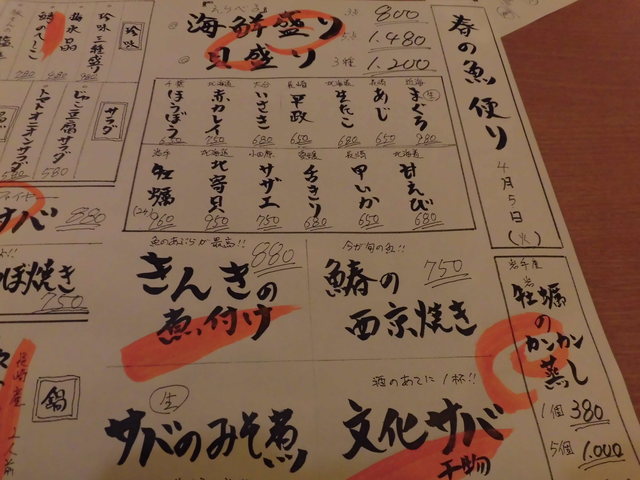 春の魚便り
4月5日
(火)
えらべる
海鮮盛り
3点 800
5点 1.480
貝盛り
3種 1.200
近海 まぐろ 生 980
長崎 あじ 650
北海道 生たこ 680
長崎 平政
大分 いさき 650
北海道 赤カレイ 750
千葉 ほうぼう 650
北海道 甘えび 680
長崎 甲いか 650
愛媛 千きり 680
小田原 サザエ 750
北海道 北寄貝 950
岩手 牡蠣 (2ケ) 960
岩手産
岩牡蠣の
カンカン
蒸し
1個 380
5個 1.000
今が旬の魚!!
鰆の
西京焼き
750
魚のあぶらが最高!!
きんきの
煮付け
880
酒のあてに1杯!!
文化サバ
干物
生
サバのみそ煮
珍味
珍味三種盛り
サラダ
じゃこ豆腐サラダ
580
トマトオニオンサラダ
580
サバ
880
ぽ焼き
750
鍋
長崎産
2人前